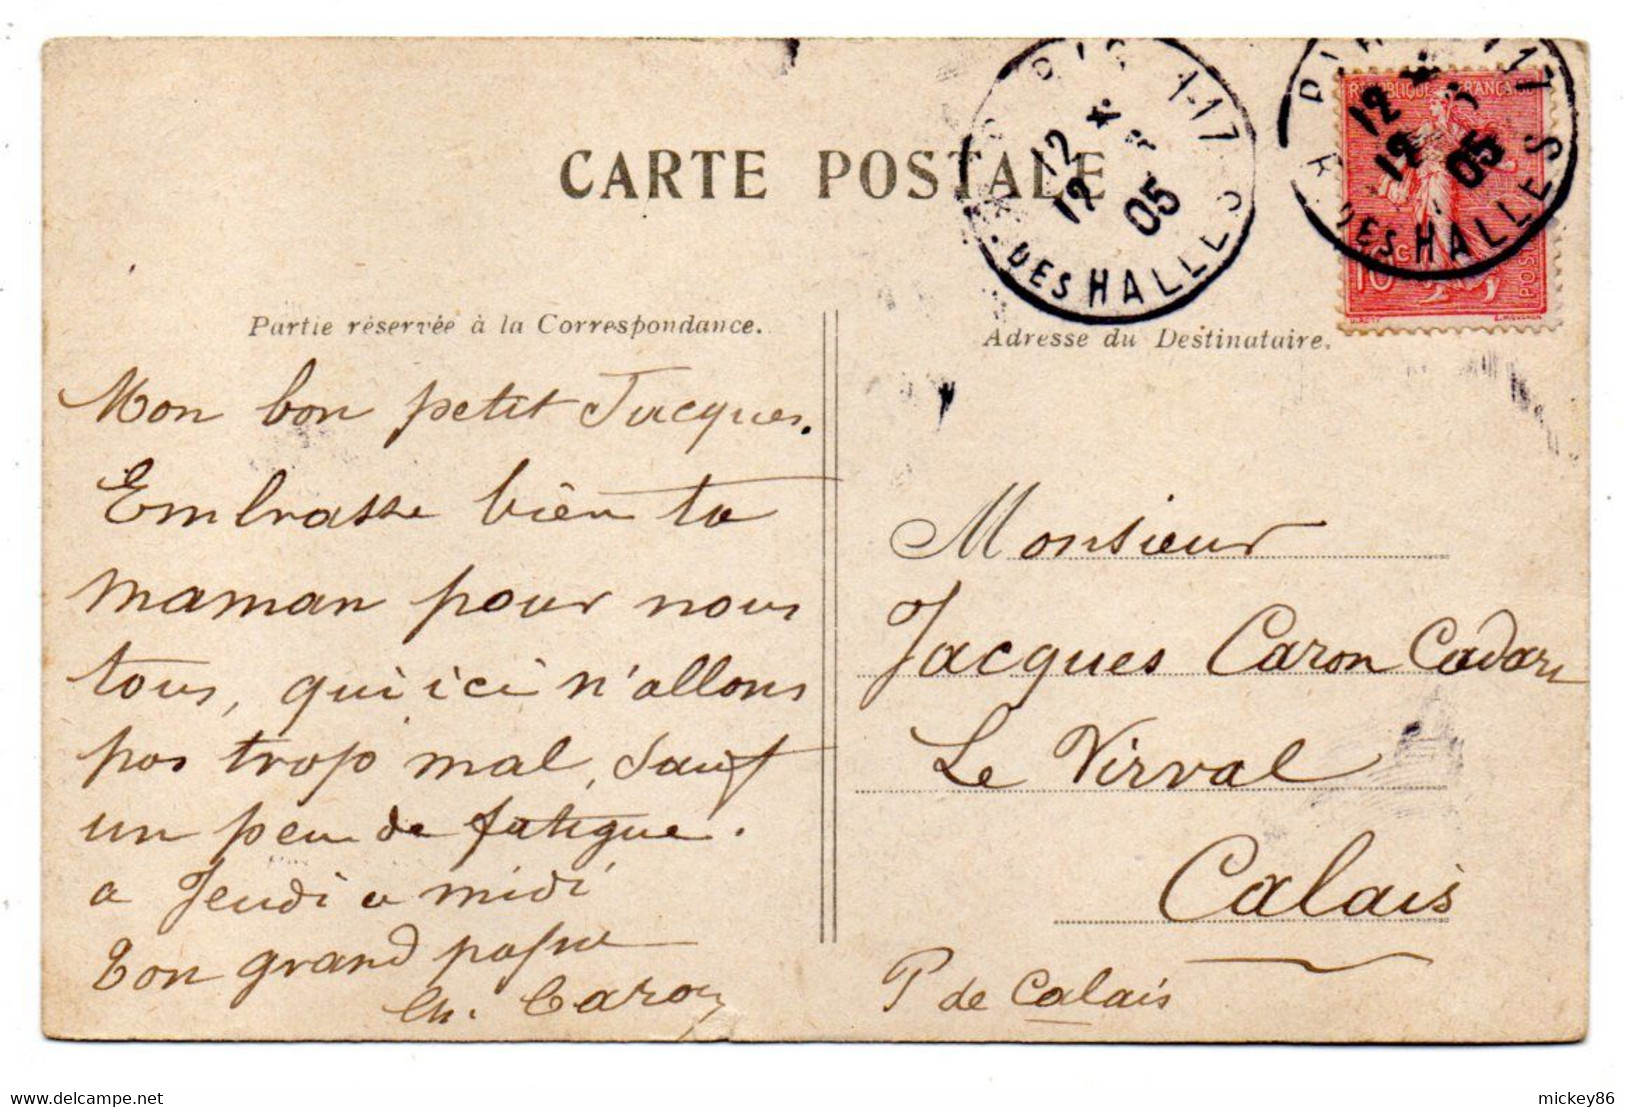 CARTE POSTALE
PARIS 1-17
12 * 12 05
R. DES HALLES
12 * 12 05
DES HALLES
REPUBLIQUE FRANÇAISE
10 c
POSTES
Partie réservée à la Correspondance.
Mon bon petit Jacques.
Embrasse bien ta
maman pour nous
tous, qui ici n'allons
pas trop mal, sauf
un peu de fatigue.
a Jeudi a midi
Ton grand papa
Ch. Caron
Adresse du Destinataire.
Monsieur
Jacques Caron
Le Virval
Calais
P de Calais
delcampe.net
mickey86